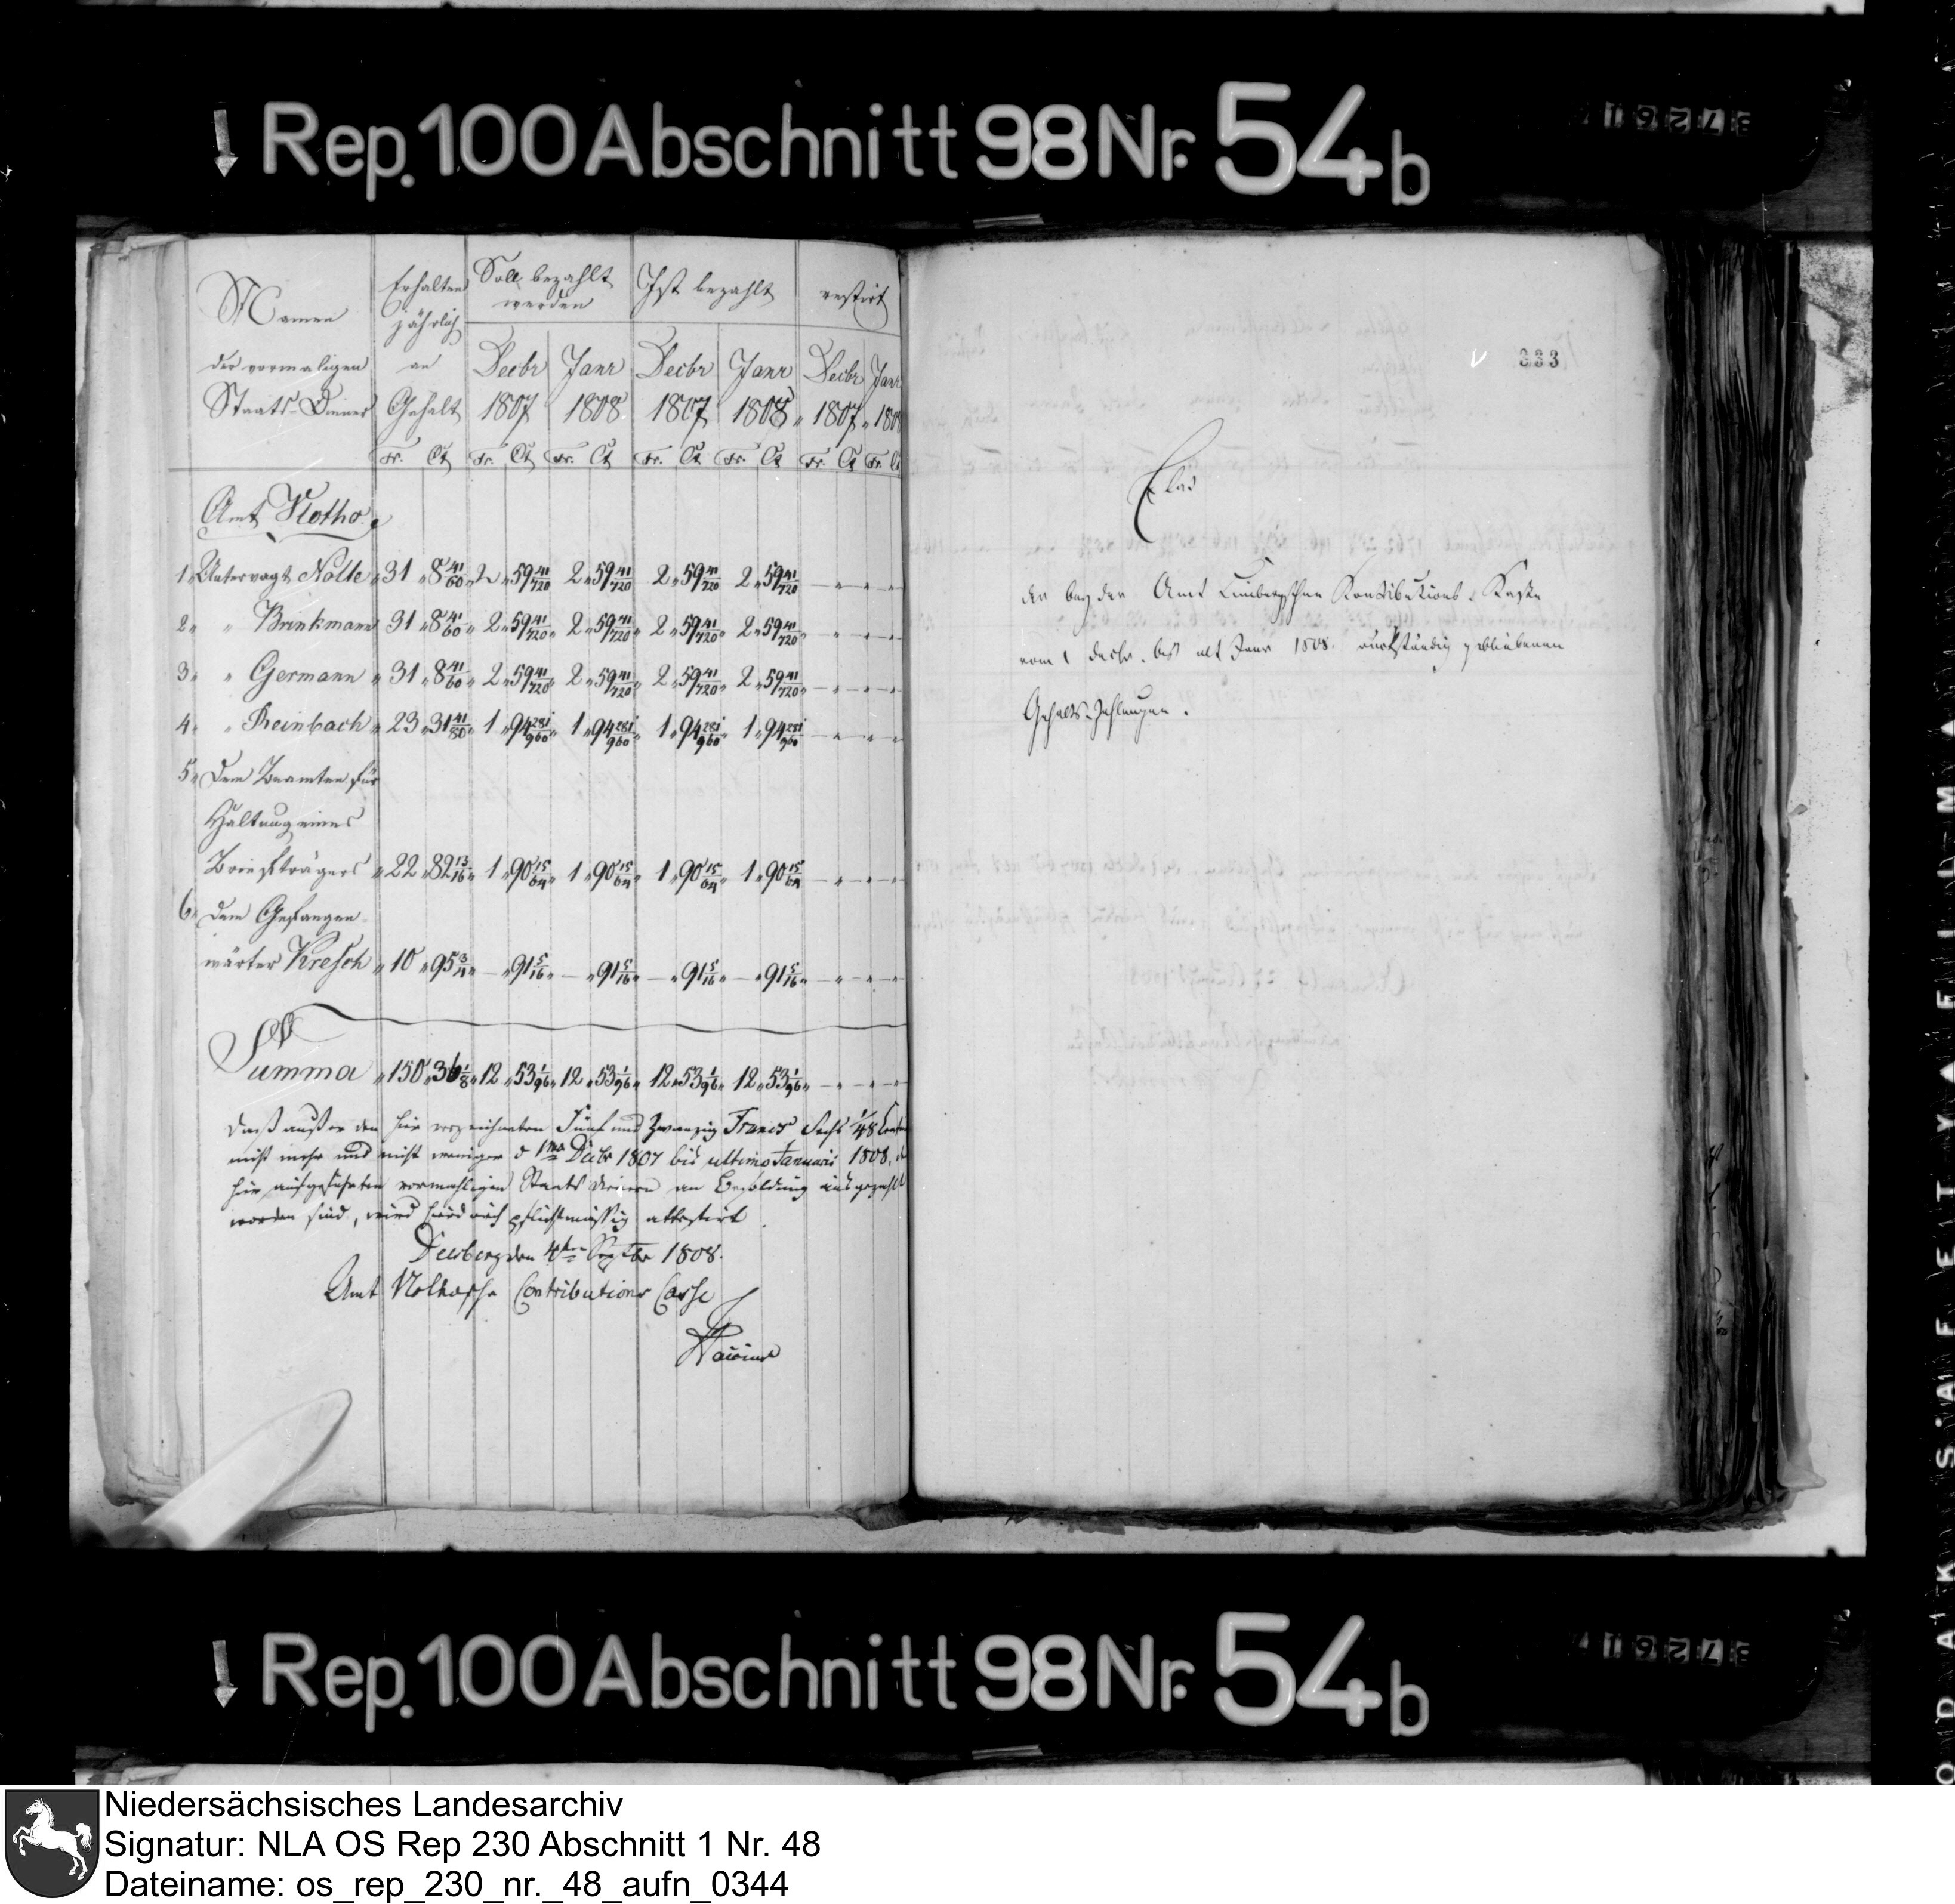 ↓ Rep. 100 Abschnitt 98 Nr. 54b
Namen der vormaligen Staats-Diener
Erhalten jährlich an Gehalt
Soll bezahlt werden
Ist bezahlt
restirt
Decbr 1807 Janr 1808 Decbr 1807 Janr 1808 Decbr 1807 Janr 180
Fr. Ct Fr. Ct Fr. Ct Fr. Ct Fr. Ct Fr. Ct Fr. Ct
Amt Vlotho
1. Untervogt Nolte " 31 " 8 41/60 " 2 " 59 41/720 2 " 59 41/720 2 " 59 41/720 2 " 59 41/720
2 " " Brinkmann 31 " 8 41/60 " 2 " 59 41/720 " 2 " 59 41/720 " 2 " 59 41/720 " 2 " 59 41/720
3 " " Germann " 31 " 8 41/60 " 2 " 59 41/720 " 2 " 59 41/720 " 2 " 59 41/720 " 2 " 59 41/720
4 " " Reinbach " 23 " 31 41/80 " 1 " 94 281/960 1 " 94 281/960 " 1 " 94 281/960 " 1 " 94 281/960
5 " Dem Beamten für
Haltung eines
Briefträgers " 22 " 82 13/16 " 1 " 90 15/64 " 1 " 90 15/64 " 1 " 90 15/64 " 1 " 90 15/64
6 " Dem Gefangen
wärter Kresch " 10 " 95 3/4 " — " 91 5/16 " — " 91 5/16 " — " 91 5/16 " — " 91 5/16
Summa " 150 " 36 1/8 " 12 " 53 1/96 " 12 " 53 1/96 " 12 " 53 1/96 " 12 " 53 1/96 "
Daß außer den hier verzeichneten Fünf und Zwanzig Francs Sechs 1/48
nicht mehr und nicht weniger 1ma Decbr 1807 bis ultimo Januarii 1808.
hier aufgeführten vormahligen Staats Dienern an Besoldung ausgezahlt
worden sind, wird hiedurch pflichtmäßig attestirt
den 4ten Septbr 1808.
Amt Vlothosche Contributions Casse
333
Etat
der bey der Amt Limbergschen Kontributions Kasse
vom 1 Decbr. bis ult Janr 1808. rückständig gebliebenen
Gehalts-Zahlungen.
↓ Rep. 100 Abschnitt 98 Nr. 54b
Niedersächsisches Landesarchiv
Signatur: NLA OS Rep 230 Abschnitt 1 Nr. 48
Dateiname: os_rep_230_nr._48_aufn_0344